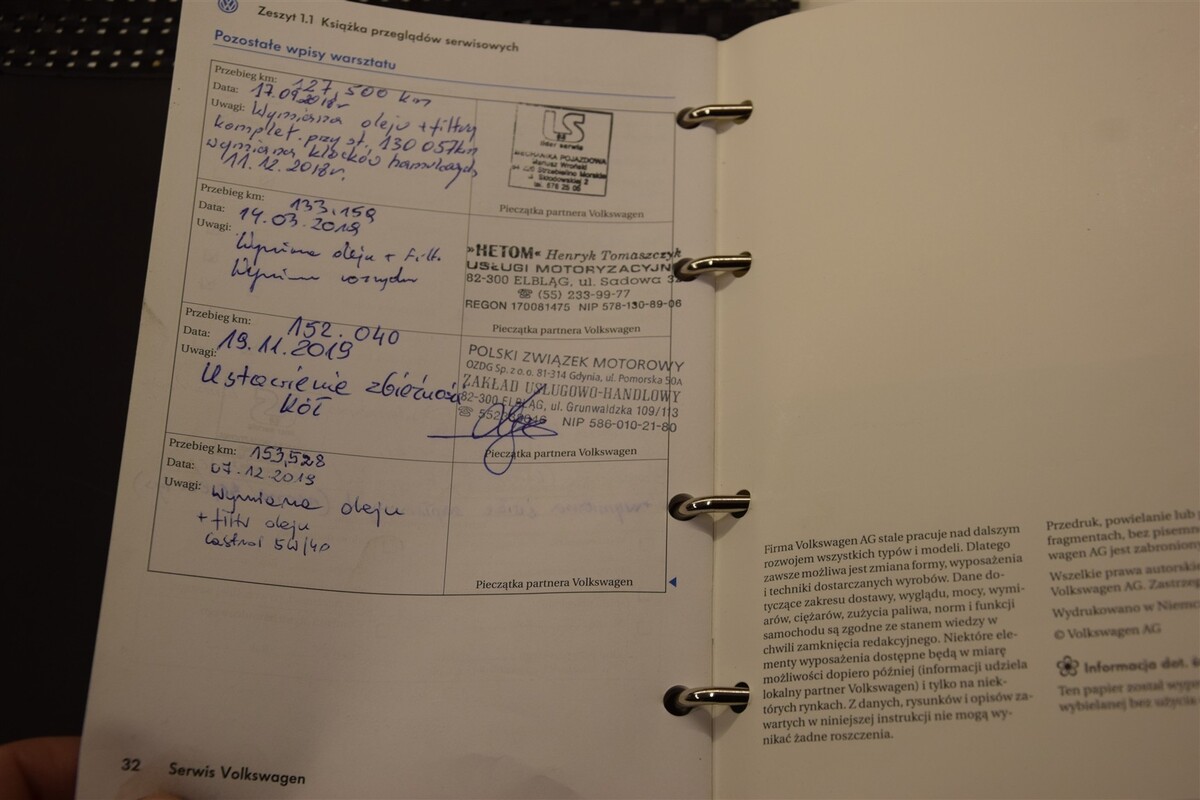 Zeszyt 1.1 Książka przeglądów serwisowych
Pozostałe wpisy warsztatu
Przebieg km: 127 500 km
Data: 17.09.2018r
Uwagi: Wymiana oleju + filtry
komplet. przy st. 130 057km
wymiana klocków hamulcowych
11.12.2018r.
LS
serwis
MECHANIKA POJAZDOWA
Mariusz Wroński
Strzebielino Morskie
Skłodowskiej 2
tel. 678 25 05
Pieczątka partnera Volkswagen
Przebieg km: 133.159
Data: 14.03.2019
Uwagi:
Wymiana oleju + filt.
Wymiana rozrządu
»HETOM« Henryk Tomaszczyk
USŁUGI MOTORYZACYJN
82-300 ELBLĄG, ul. Sadowa
☎ (55) 233-99-77
REGON 170081475 NIP 578-130-89-06
Pieczątka partnera Volkswagen
Przebieg km: 152.040
Data: 19.11.2019
Uwagi:
Ustawienie zbieżności
kół
POLSKI ZWIĄZEK MOTOROWY
OZDG Sp. z o.o. 81-314 Gdynia, ul. Pomorska 50A
ZAKŁAD USŁUGOWO-HANDLOWY
82-300 ELBLĄG, ul. Grunwaldzka 109/113
☎ NIP 586-010-21-80
Pieczątka partnera Volkswagen
Przebieg km: 153,528
Data: 07.12.2019
Uwagi: Wymiana oleju
+ filtr oleju
Castrol 5W/40
Pieczątka partnera Volkswagen
32 Serwis Volkswagen
Firma Volkswagen AG stale pracuje nad dalszym
rozwojem wszystkich typów i modeli. Dlatego
zawsze możliwa jest zmiana formy, wyposażenia
i techniki dostarczanych wyrobów. Dane do-
tyczące zakresu dostawy, wyglądu, mocy, wymi-
arów, ciężarów, zużycia paliwa, norm i funkcji
samochodu są zgodne ze stanem wiedzy w
chwili zamknięcia redakcyjnego. Niektóre ele-
menty wyposażenia dostępne będą w miarę
możliwości dopiero później (informacji udziela
lokalny partner Volkswagen) i tylko na niek-
tórych rynkach. Z danych, rysunków i opisów za-
wartych w niniejszej instrukcji nie mogą wy-
nikać żadne roszczenia.
Przedruk, powielanie lub
fragmentach, bez pisemn
wagen AG jest zabronion
Wszelkie prawa autorski
Volkswagen AG. Zastrzeg
Wydrukowano w Niem
© Volkswagen AG
Informacja dot.
Ten papier został
wybielanej bez użycia